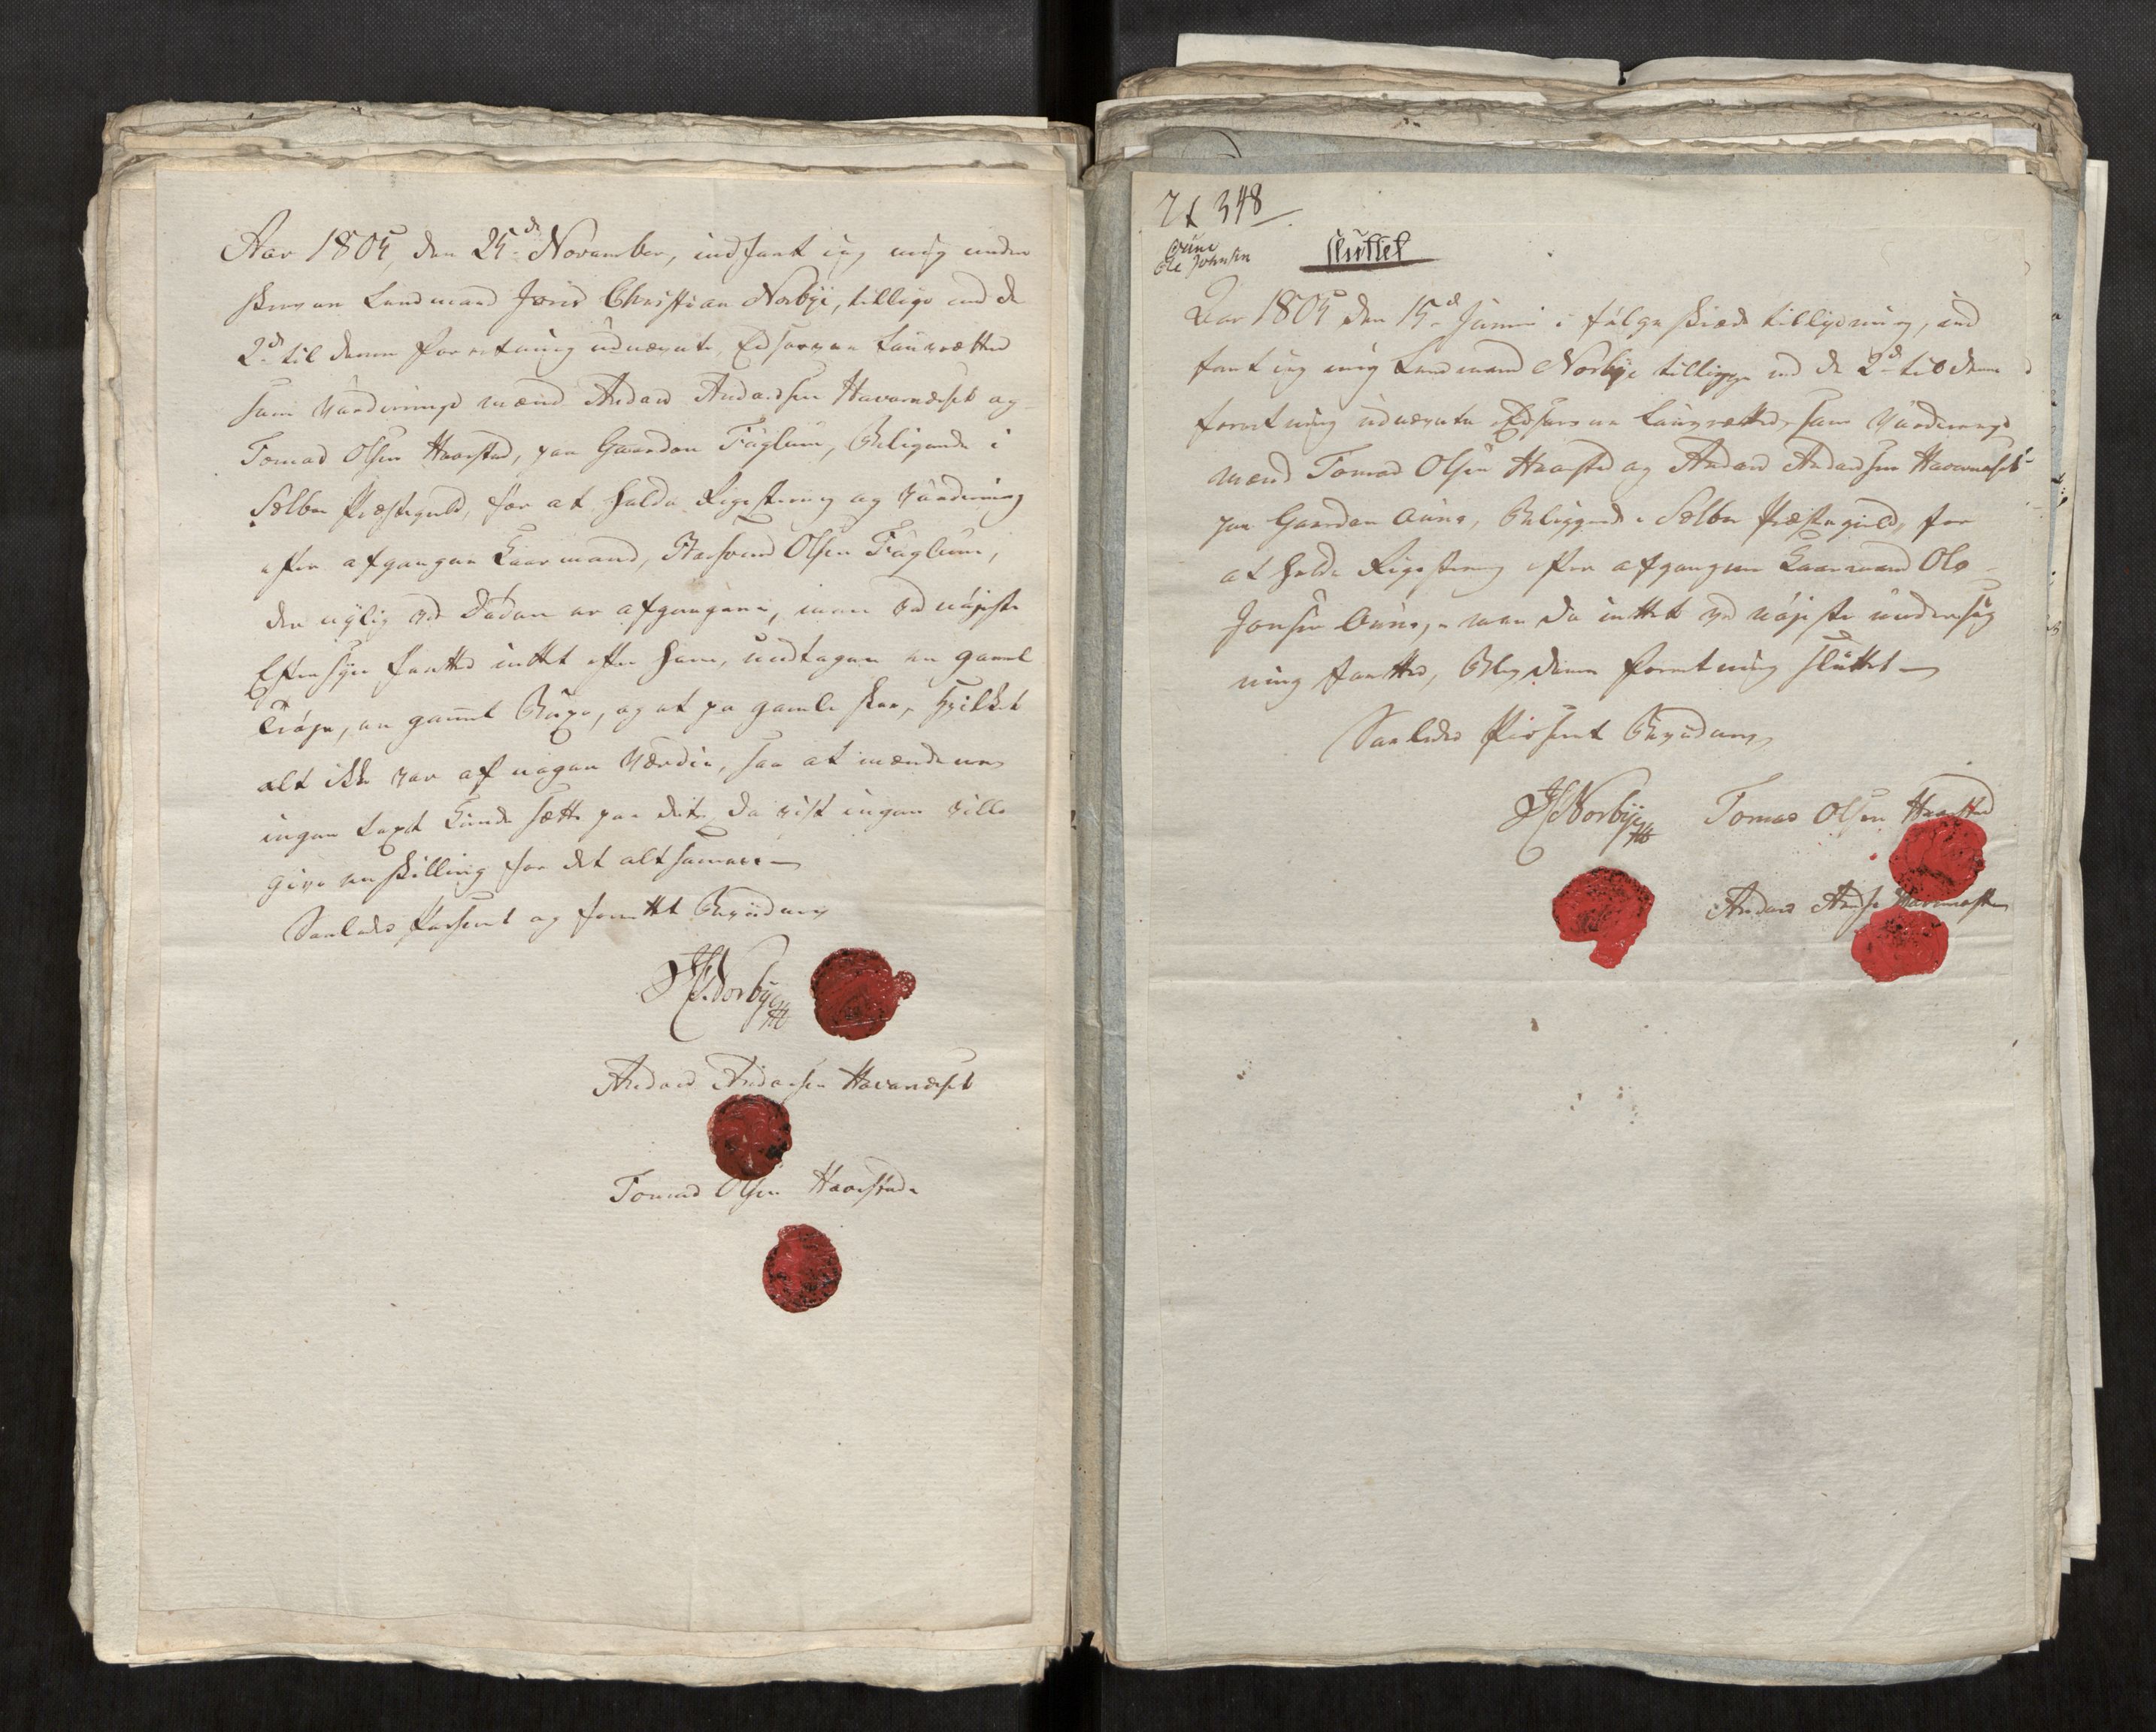 Aar 1805, den 25de November, indfant jeg mig under
skrevne Lensmand Jens Christian Norbye, tillige med de
2de til denne Forretning udnævnte, Edsorne Laugretted
som Vurderings mænd Anders Andersen Havernæset og
Tomas Olsen Haarstad, paa Gaarden Fuglum, Beligende i
Sælboe Præstegield, for at holde Registering og Vurdering
efter afgangne Kaarmand, Haldved Olsen Fuglum,
der nylig ved Døden er afgangene, men ved nøjeste
Eftersyn fantes inttet efter ham, undtagen en gamel
Trøje, en gamel Buxe, og et par gamle skoe, hvilket
alt ikke var af nogen Værdie, saa at mændene
ingen taxt kunde sætte paa dete, da vist ingen ville
give en skilling for det altsamen
Saaledes Passeret og forrettet Bevidner
JC Norbye
Anders Andersen Havernæset
Tomas Olsen Haarstad
348
Oune
Ole Johnsen
sluttet
Aar 1805 den 15de Junni i følge skeede tillysning, ind
fant jeg mig Lensmand Norbye tilligge med de 2de til denne
forretning udnævnte Edsorne Laugretted, som Vurderings
mænd Tomas Olsen Haarstad og Anders Andersen Havernæset
paa Gaarden Oune, Beliggende i Sælboe Præstegield, for
at holde Registering efter afgangne Kaarmand Ole
Jonsen Oune, men da inttet ved nøjeste undersøg
ning fantes, Blev denne forretning sluttet
Saaledes Passeret Bevidner
JC Norbye Tomas Olsen Haarstad
Anders Anders Havernæset